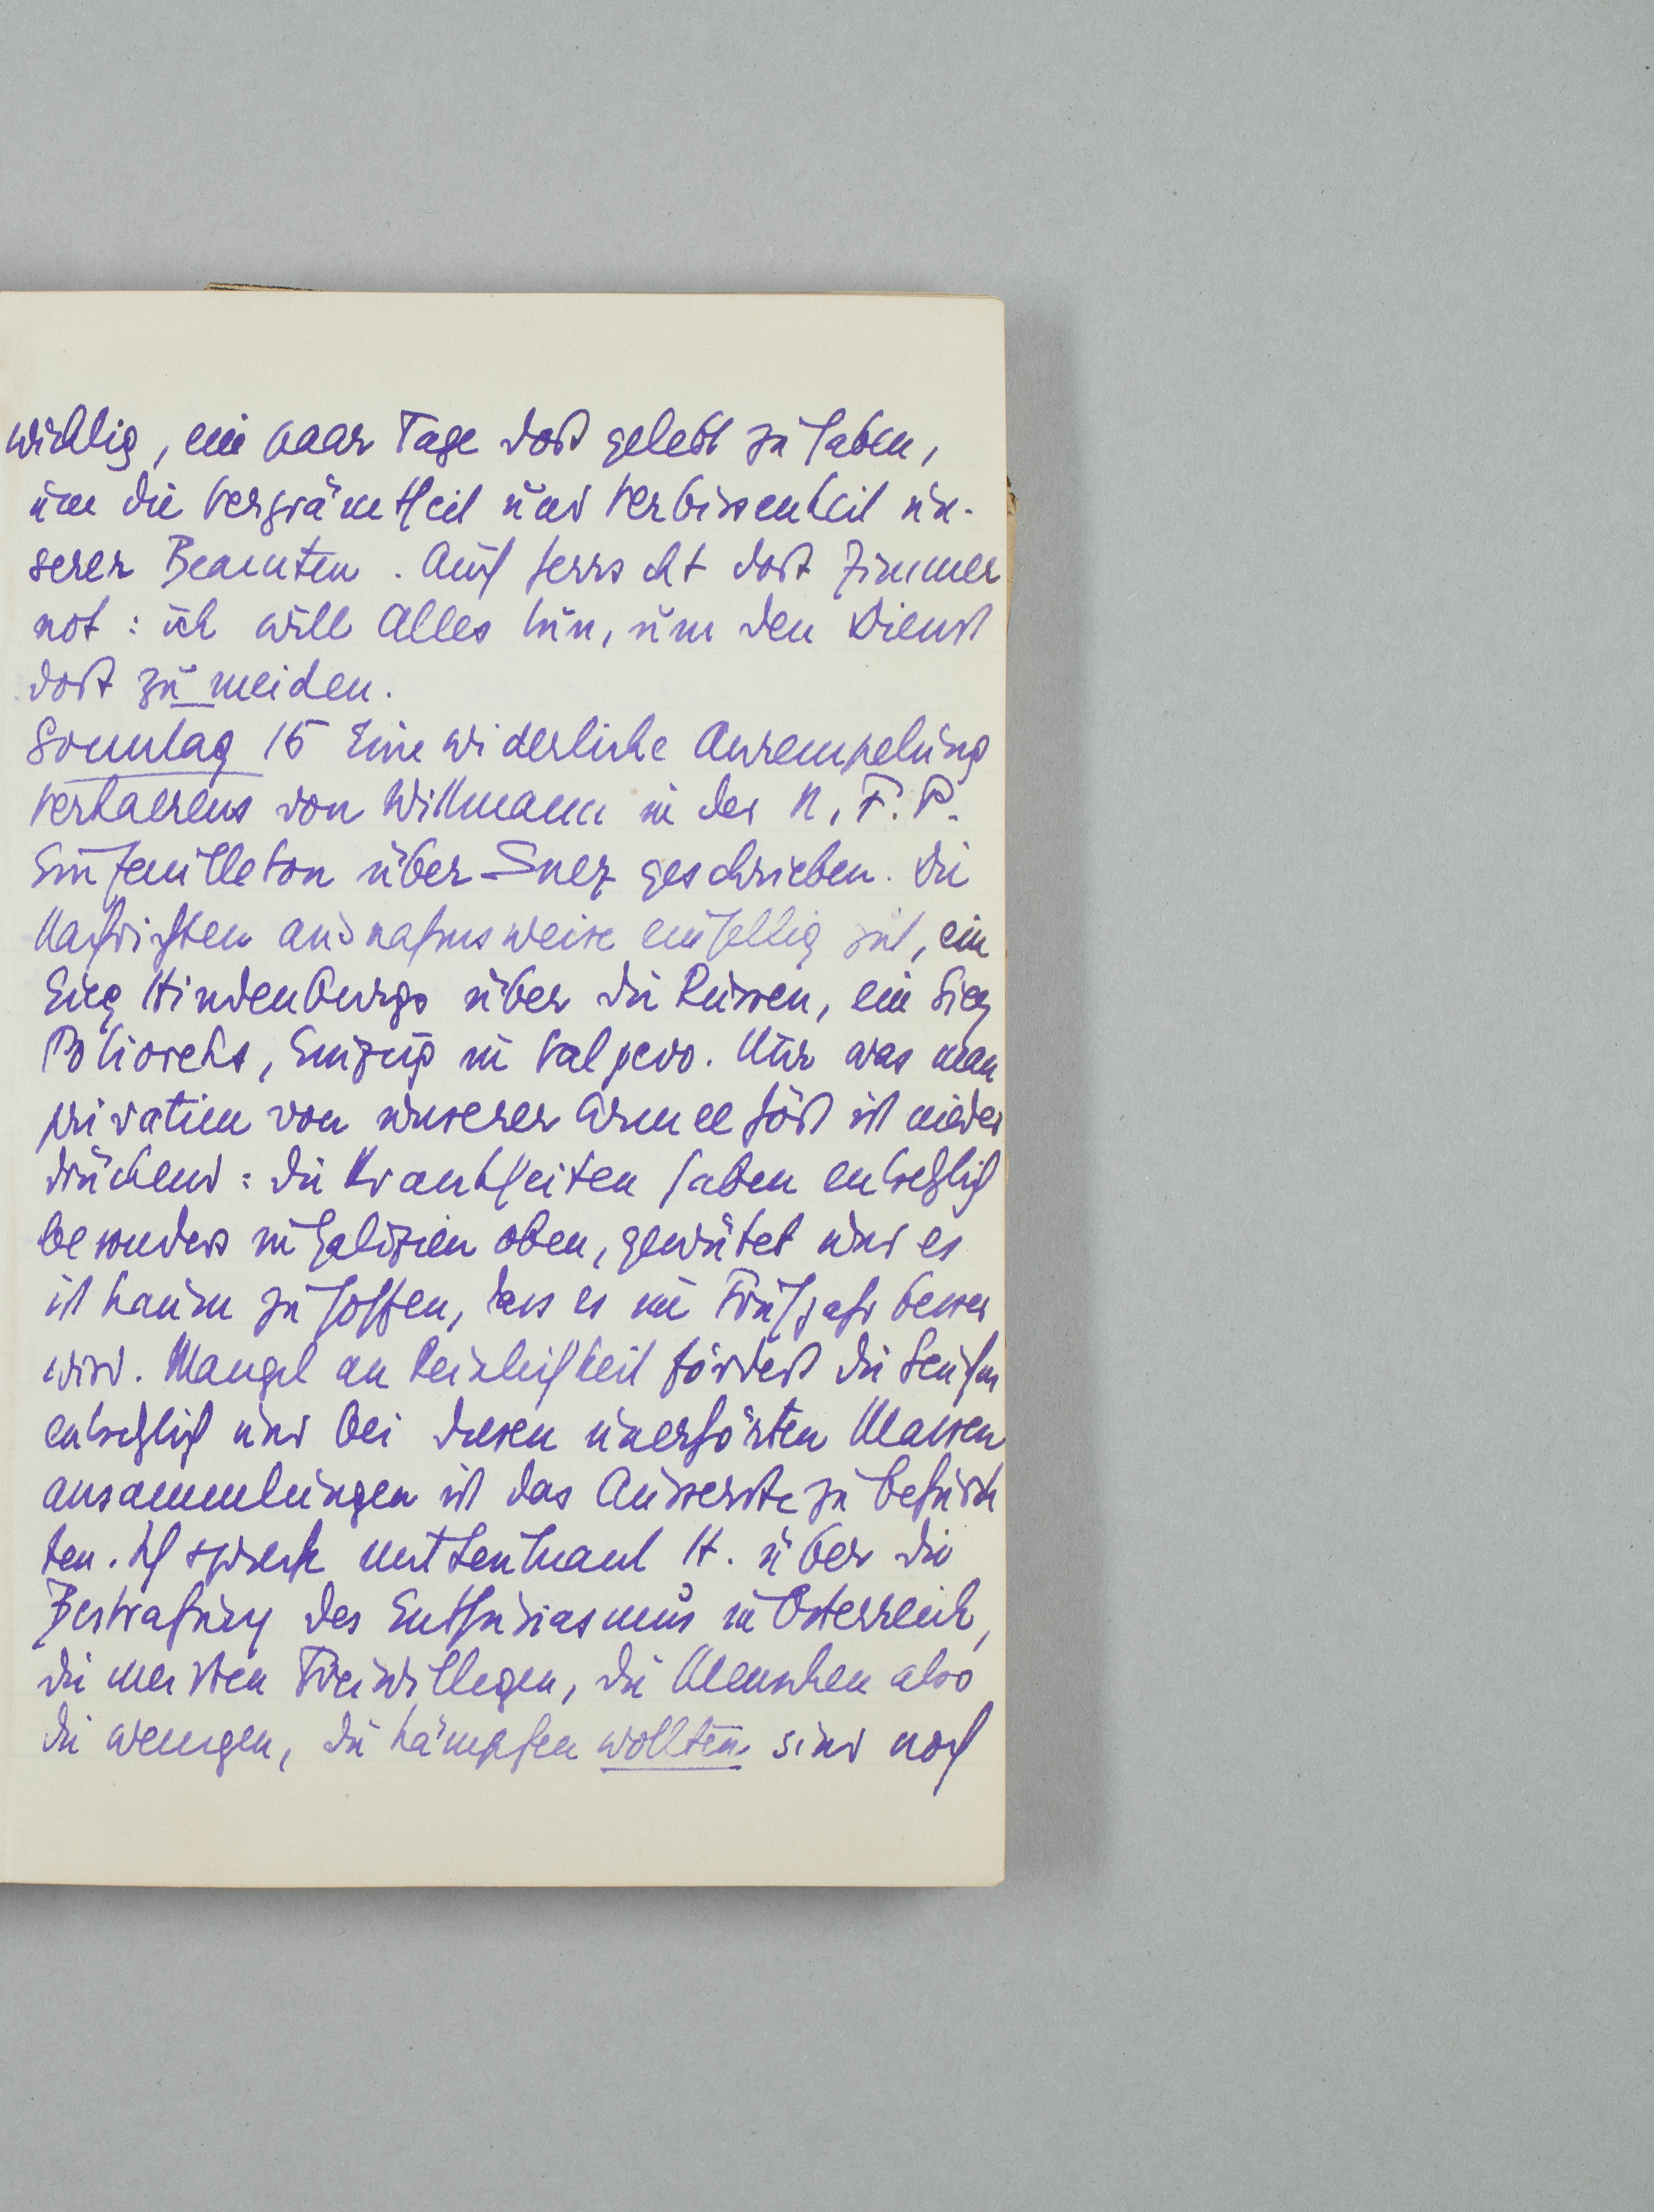 wichtig, ein paar Tage dort gelebt zu haben,
um die Vergrämtheit und Verbissenheit un-
serer Beamten. Auch herrscht dort Zimmer
not: ich will Alles tun, um den Dienst
dort zu meiden.
Sonntag 15 Eine widerliche Anrempelung
Verhaerens von Willmann in der N. F. P.
Ein Feuilleton über Suez geschrieben. Die
Nachrichten ausnahmsweise einhellig gut, ein
Sieg Hindenburgs über die Russen, ein Sieg
Potioreks, Einzug in Valjevo. Nur was man
privatim von unserer Armee hört ist nieder
drückend: die Krankheiten haben entsetzlich
besonders in Galizien oben, gewütet und es
ist kaum zu hoffen, dass es im Frühjahr besser
wird. Mangel an Reinlichkeit fördert die Seuchen
entsetzlich und bei diesen unerhörten Massen
ansammlungen ist das Äusserste zu befürch
ten. Ich sprach mit Leutnant H. über die
Bestrafung des Enthusiasmus in Österreich,
die meisten Freiwilligen, die Menschen also
die wenigen, die kämpfen wollten sind noch